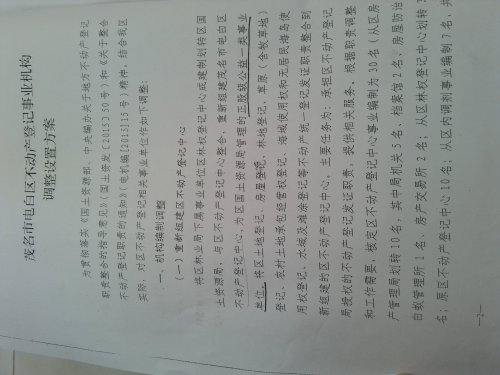 茂名市电白区不动产登记事业机构
调整设置方案
为贯彻落实《国土资源部、中央编办关于地方不动产登记
职责整合的指导意见》(国土资发〔2015〕50号)和《关于整合
不动产登记职责的通知》(电机编〔2015〕15号)精神,结合我区
实际,对区不动产登记相关事业单位作如下调整:
一、机构编制调整
(一)重新组建区不动产登记中心
将区林业局下属事业单位区林权登记中心成建制划转区国
土资源局,与区不动产登记中心整合,重新组建茂名市电白区
不动产登记中心,为区国土资源局管理的正股级公益一类事业
单位。将区土地登记、房屋登记、林地登记、草原(含牧草地)
登记、农村土地承包经营权登记、海域使用权和无居民海岛使
用权登记、水域及滩涂登记等不动产统一登记发证职责整合到
新组建的区不动产登记中心。主要任务为:承担区不动产登记
局授权的不动产登记发证职责,提供相关服务。根据职责调整
和工作需要,核定区不动产登记中心事业编制为30名(从区房
产管理局划转10名,其中局机关5名、档案馆2名、房屋防治
白蚁管理所1名、房产交易所2名;从区林权登记中心划转3
名;原区不动产登记中心10名;从区内调剂事业编制7名,共